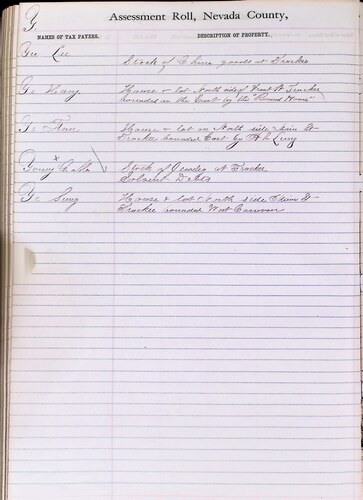 Y
Assessment Roll, Nevada County,
NAMES OF TAX PAYERS.
DESCRIPTION OF PROPERTY.
Lee
Stock of China goods at Truckee
House & lot North side of Front St Truckee
bounded on the East by the "Round House"
House & lot on North side St
Truckee bounded East by Ah Ling
Young
Stock of Goods at Truckee
Solvent Debts
Ye Sung
House & lot North side St
Truckee bounded West